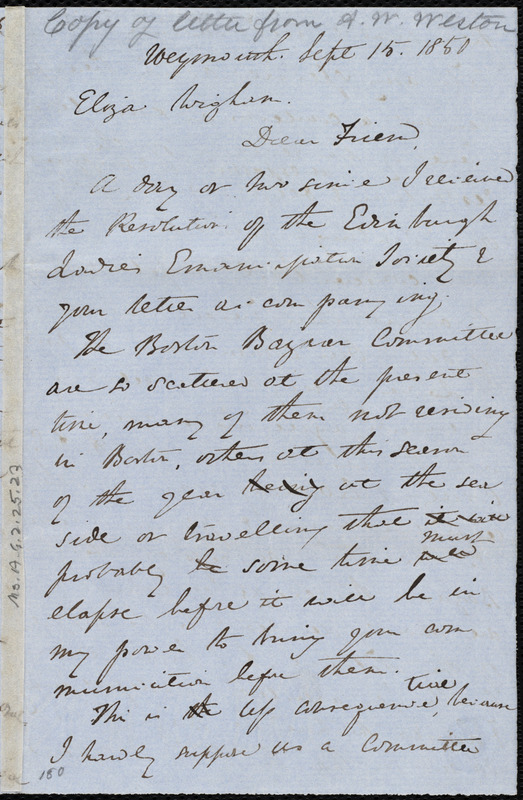 Copy of letter from A. W. Weston
Weymouth. Sept 15. 1850
Eliza Wigham.
Dear Friend,
A day or two since I received
the Resolution of the Edinburgh
Ladies Emancipation Society &
your letter accompanying.
The Boston Bazaar Committee
are so scattered at the present
time, many of them not residing
in Boston, others at this season
of the year being at the sea
side or travelling that it will
probably be some time will must
elapse before it will be in
my power to bring your com
munication before them.
This is the less consequence, because
I hardly suppose us a Committee
180
No. A.9.2.25.23